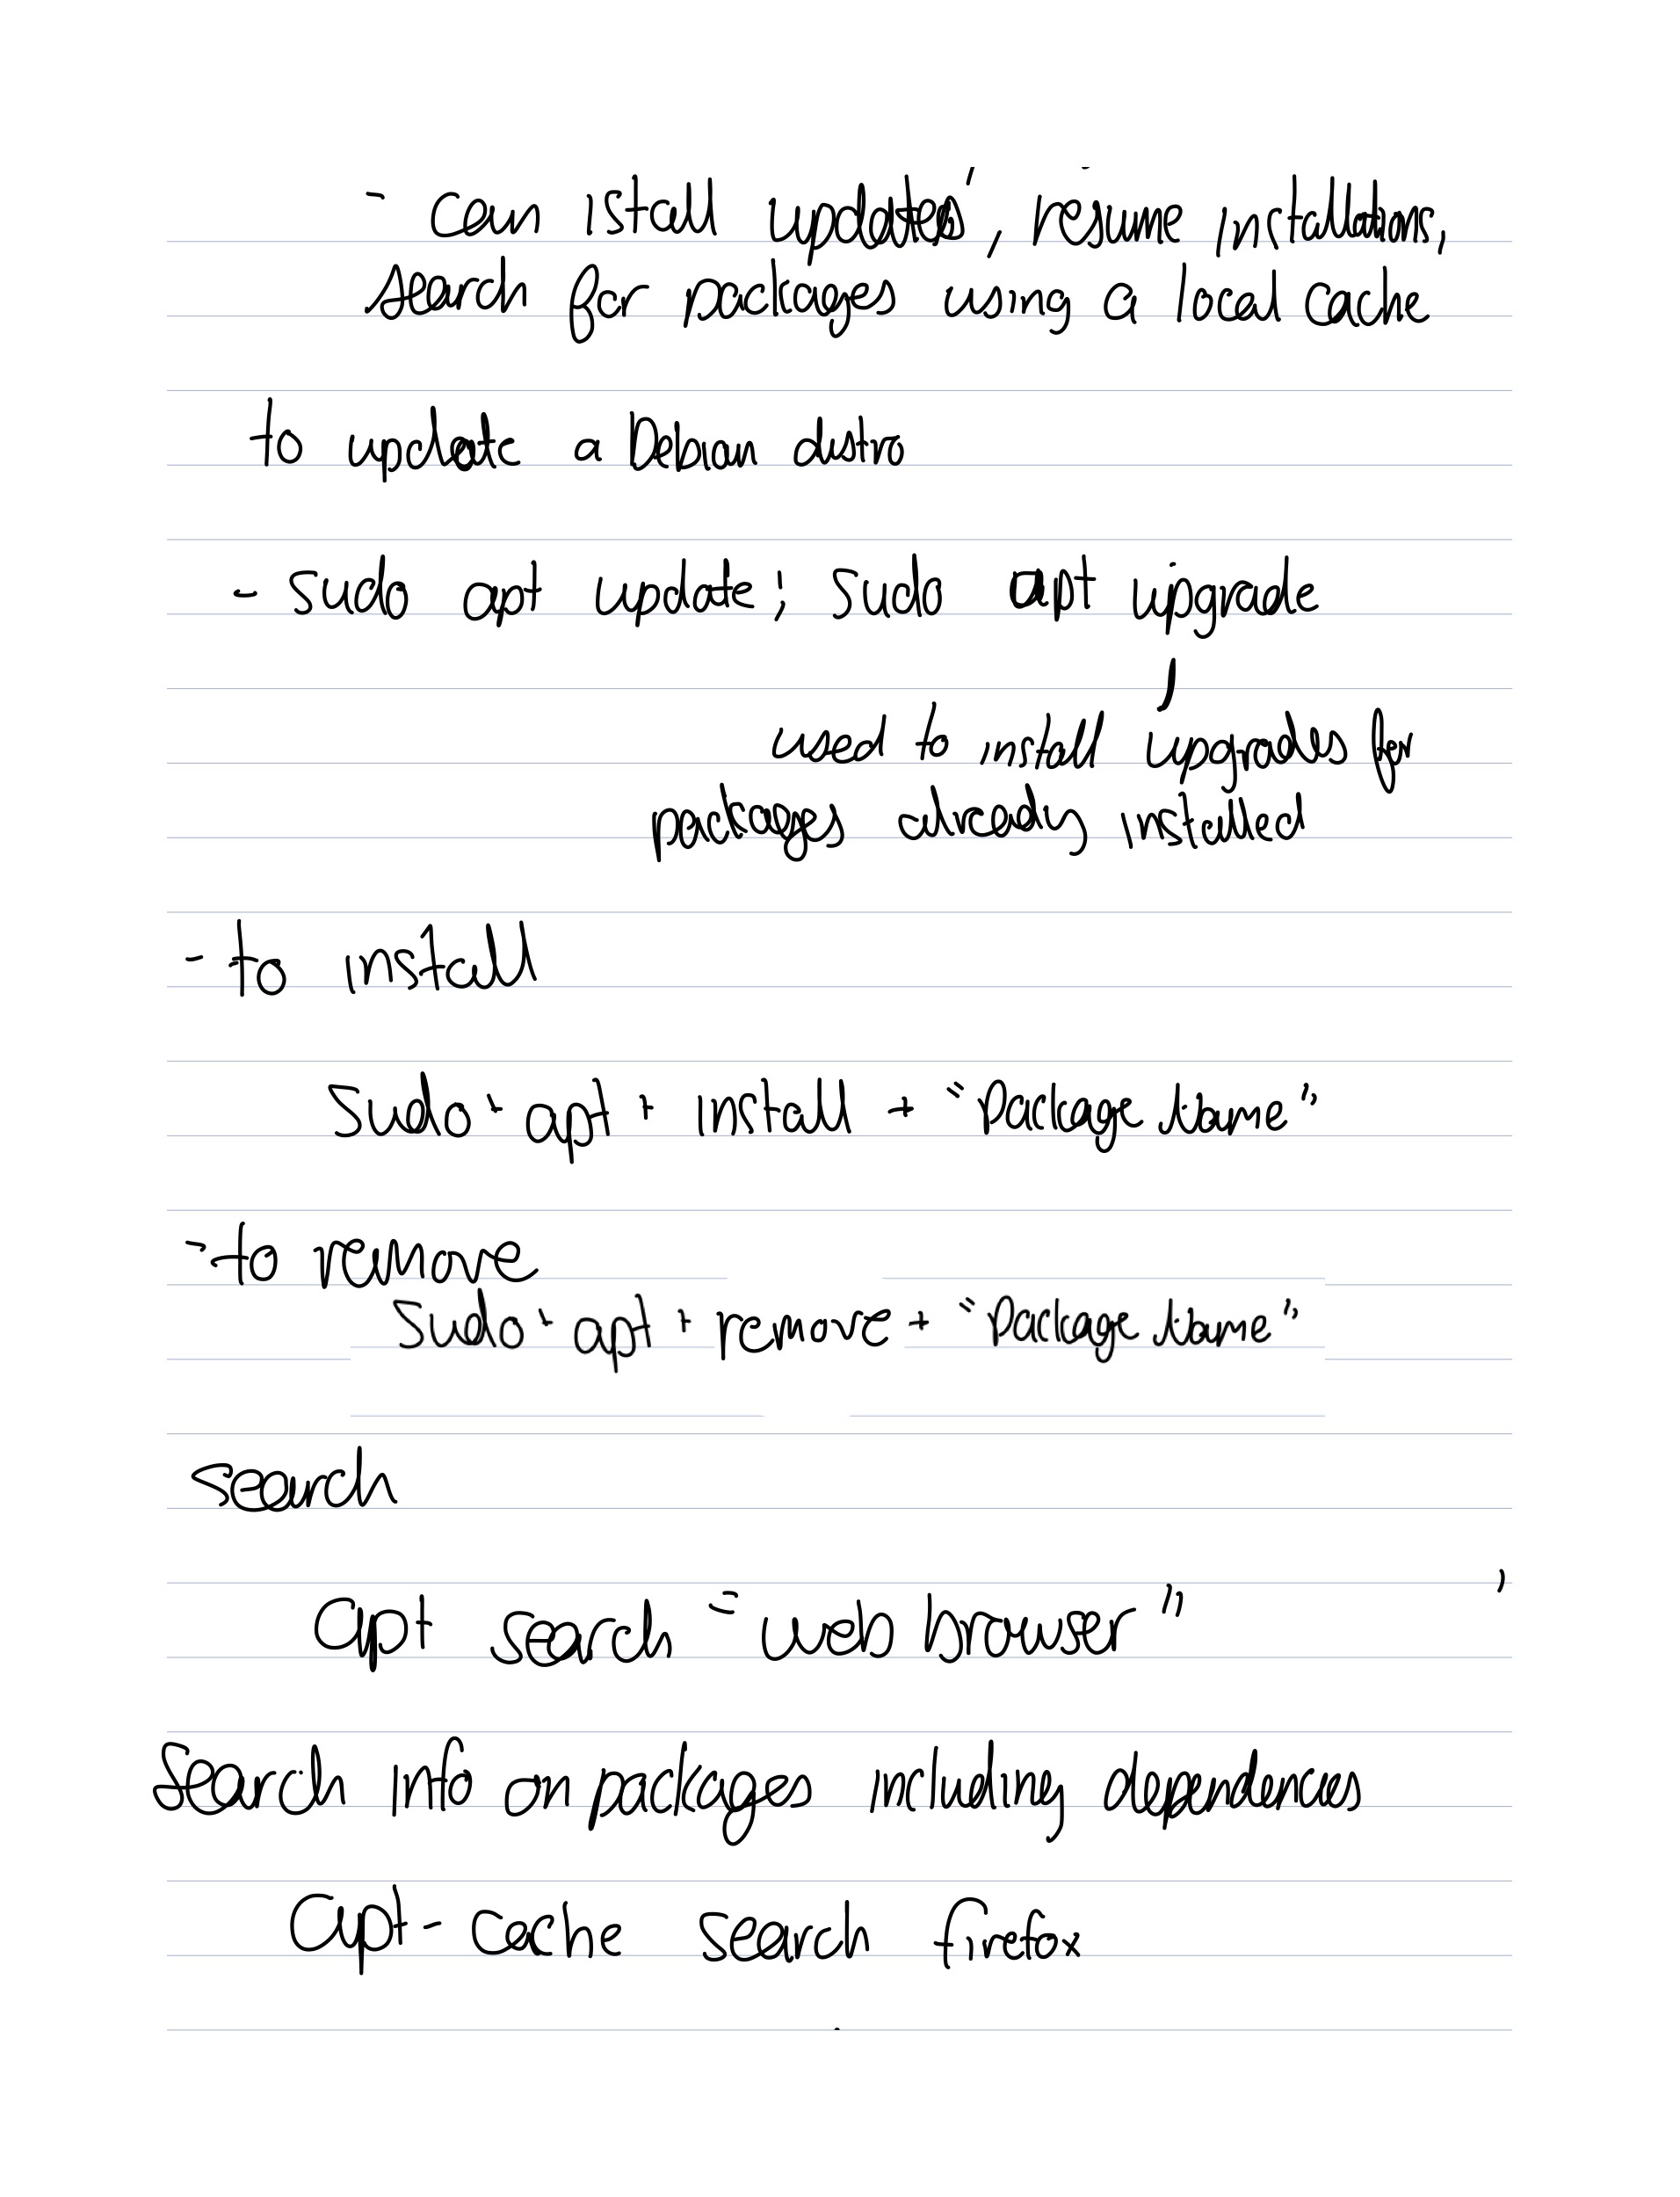 - can istall updates, resume installations,
search for packages using a local cache
to update a Debian distro
- sudo apt update; sudo apt upgrade
used to install upgrades for
packages already installed
- to install
Sudo + apt + install + "Package Name"
- to remove
Sudo + apt + remove + "Package Name"
search
apt search "web browser"
search info on packages including dependences
apt-cache search firefox